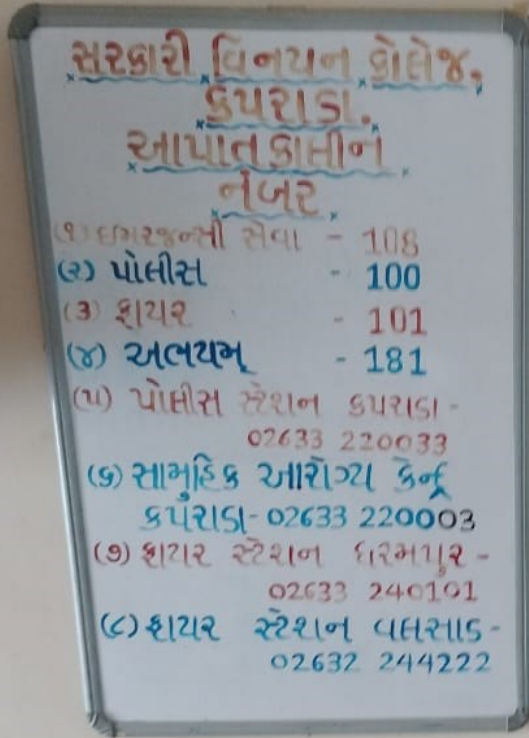 સરકારી વિનયન કોલેજ,
કપરાડા.
આપાતકાલીન
નંબર
(૧) ઇમરજન્સી સેવા - 108
(૨) પોલીસ - 100
(૩) ફાયર - 101
(૪) અભયમ્ - 181
(૫) પોલીસ સ્ટેશન કપરાડા -
02633 220033
(૬) સામુહિક આરોગ્ય કેન્દ્ર
કપરાડા - 02633 220003
(૭) ફાયર સ્ટેશન ધરમપુર -
02633 240101
(૮) ફાયર સ્ટેશન વલસાડ -
02632 244222